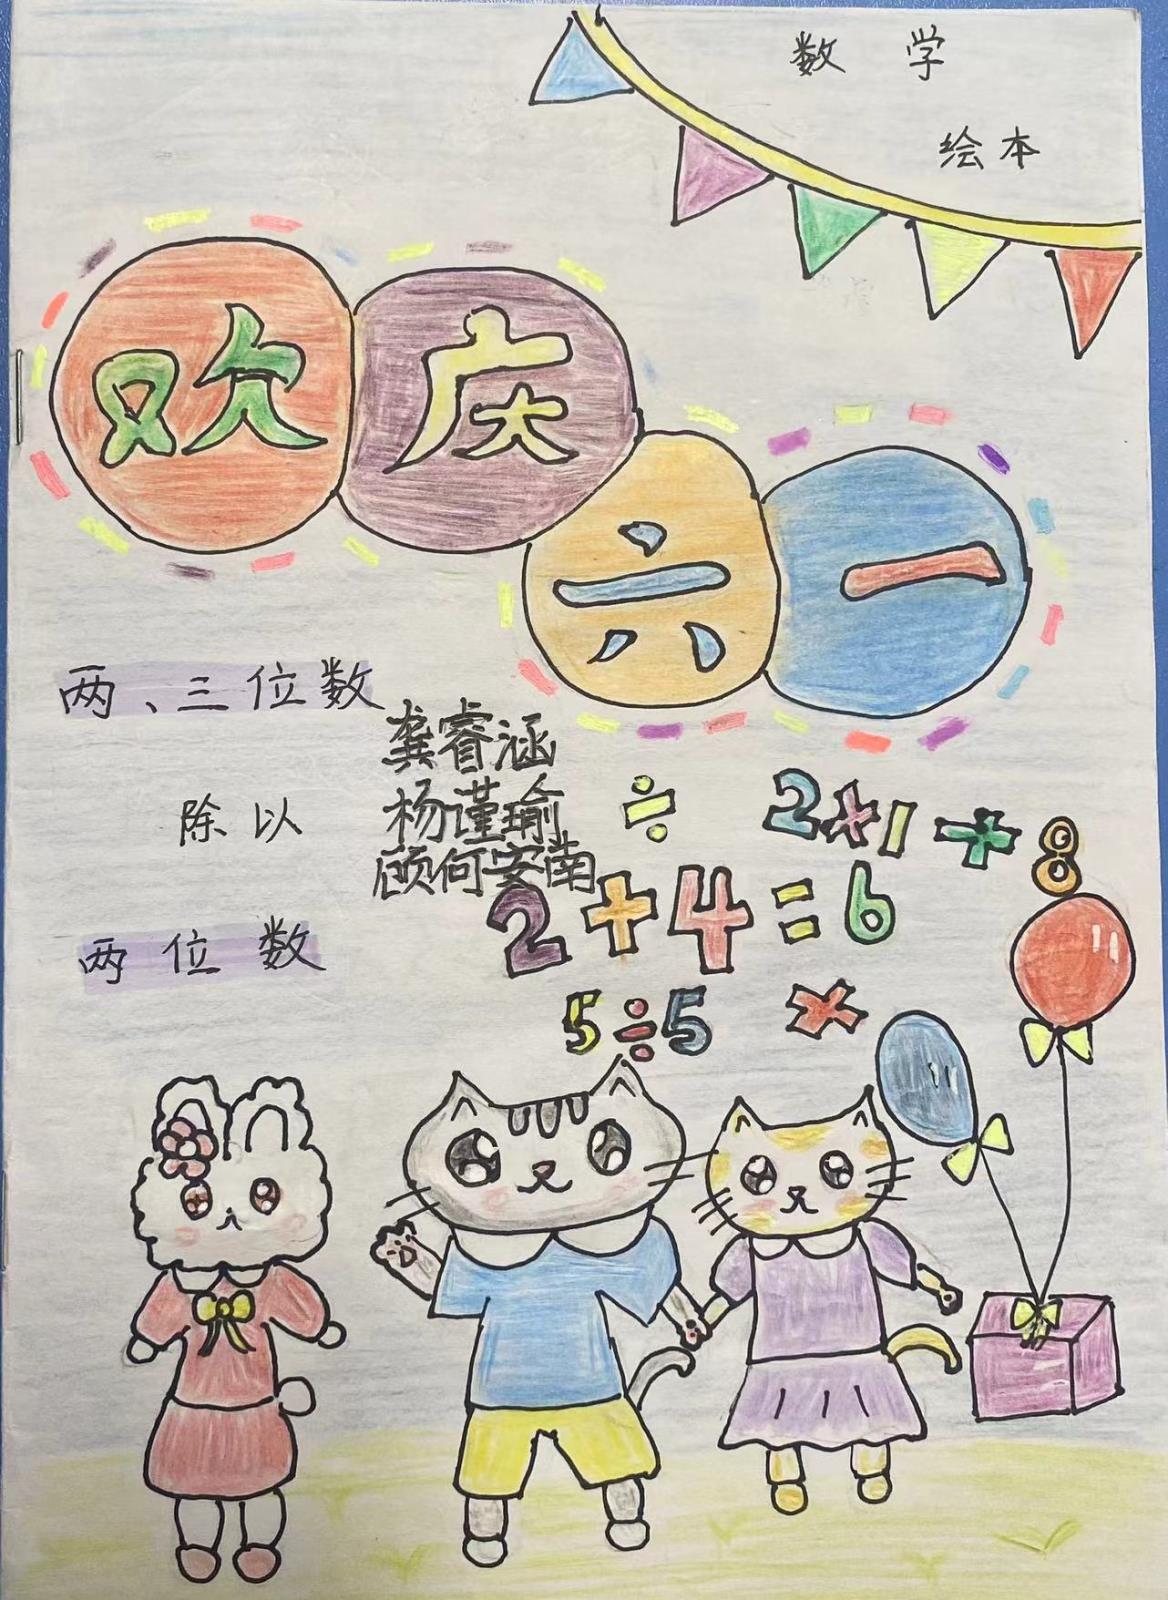 数 学
绘本
欢庆
六一
两、三位数
除以
两位数
龚睿涵
杨谨瑜
顾何安南
÷ 2×1+8
2+4=6
5÷5 ×